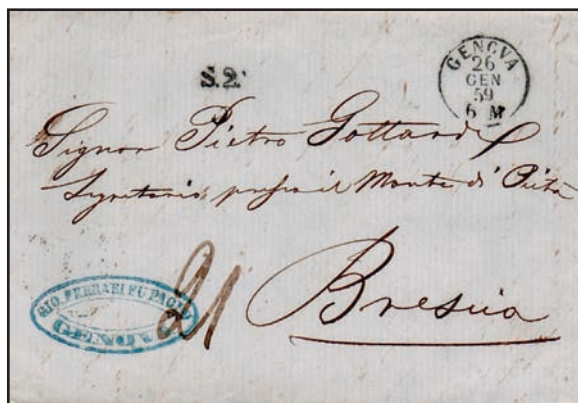 S.2.
GENOVA
26
GEN
59
6 M
Signor Pietro Gottardi
Segretario presso il Monte di Pietà
GIO. FERRARI FU PAOLO
GENOVA
21
Brescia